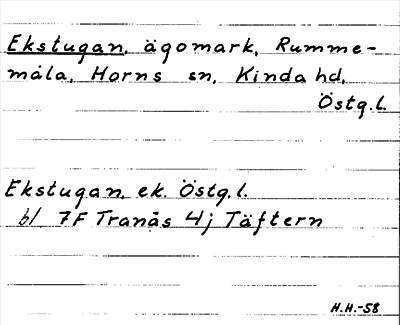 Ekstugan, ägomark, Rumme-
måla, Horns sn, Kinda hd,
Östg.l.
Ekstugan, ek. Östg.l.
bl. 7F Tranås 4j Täftern
H.H.-58